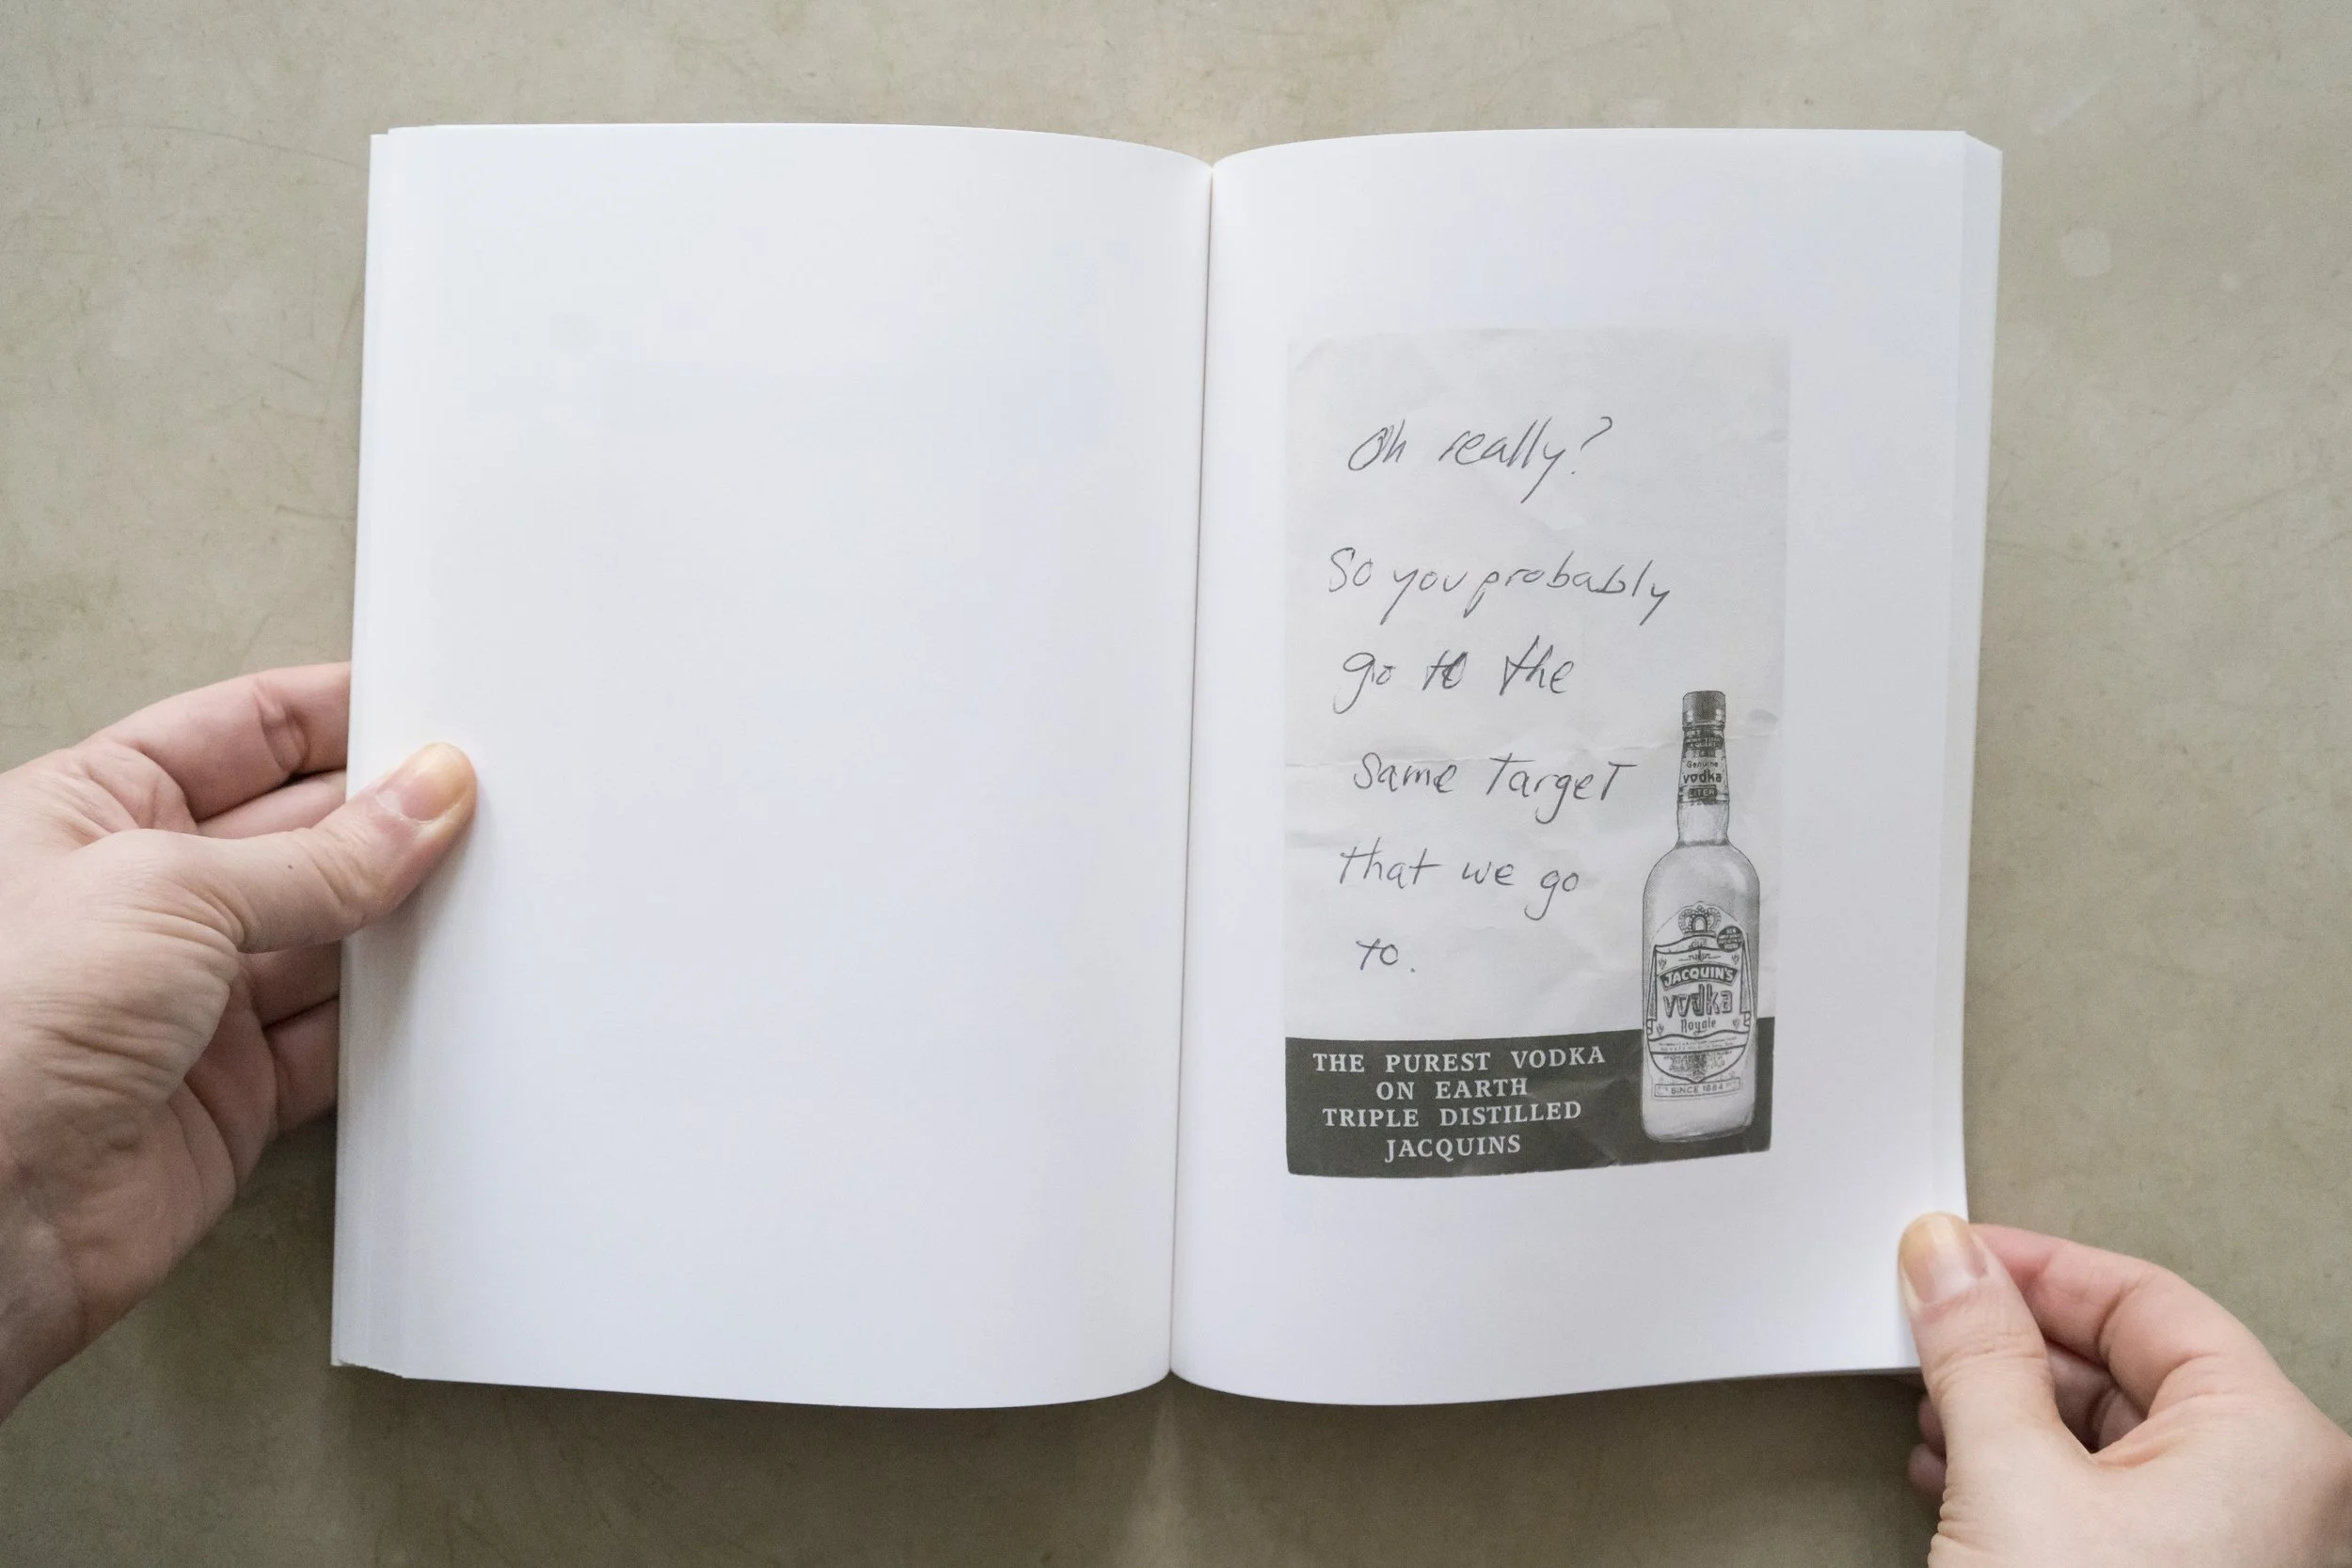 Oh really?
So you probably
go to the
same Target
that we go
to.
Genuine
vodka
LITER
JACQUIN'S
vodka
Royale
SINCE 1884
THE PUREST VODKA
ON EARTH
TRIPLE DISTILLED
JACQUINS